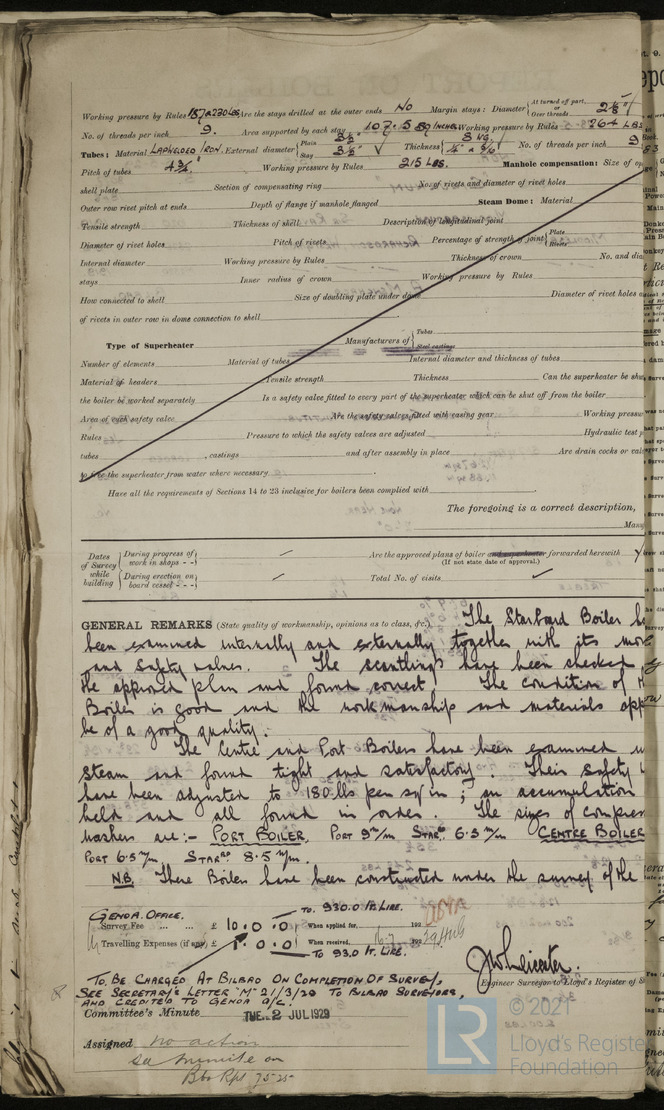 Working pressure by Rules 187 & 230 LBS Are the stays drilled at the outer ends No Margin stays: Diameter { At turned off part, or Over threads 2 1/8"
No. of threads per inch 9. Area supported by each stay 107.5 SQ INCHES Working pressure by Rules 264 LBS
Tubes: Material LAPWELDED IRON. External diameter { Plain 3 1/2" Stay 3 1/2" Thickness { 8 WG. 1/4" & 5/16" No. of threads per inch 9
Pitch of tubes 4 3/4" Working pressure by Rules 215 LBS. Manhole compensation: Size of op
shell plate Section of compensating ring No. of rivets and diameter of rivet holes
Outer row rivet pitch at ends Depth of flange if manhole flanged Steam Dome: Material
Tensile strength Thickness of shell Description of longitudinal joint
Diameter of rivet holes Pitch of rivets Percentage of strength of joint { Plate Rivets
Internal diameter Working pressure by Rules Thickness of crown No. and dia
stays Inner radius of crown Working pressure by Rules
How connected to shell Size of doubling plate under dome Diameter of rivet holes a
of rivets in outer row in dome connection to shell
Type of Superheater Manufacturers of { Tubes Steel castings
Number of elements Material of tubes Internal diameter and thickness of tubes
Material of headers Tensile strength Thickness Can the superheater be shu
the boiler be worked separately Is a safety valve fitted to every part of the superheater which can be shut off from the boiler
Area of each safety valve Are the safety valves fitted with easing gear Working pressu
Rules Pressure to which the safety valves are adjusted Hydraulic test p
tubes , castings and after assembly in place Are drain cocks or val
to free the superheater from water where necessary
Have all the requirements of Sections 14 to 23 inclusive for boilers been complied with
The foregoing is a correct description,
Manu
Dates of Survey while building { During progress of work in shops - - Are the approved plans of boiler and superheater forwarded herewith
(If not state date of approval.)
{ During erection on board vessel - - - Total No. of visits
GENERAL REMARKS (State quality of workmanship, opinions as to class, &c.) The Starboard Boiler h
been examined internally and externally together with its mo
and safety valves. The scantlings have been checked
the approved plan and found correct The condition of
Boiler is good and the workmanship and materials app
be of a good quality.
The Centre and Port Boilers have been examined u
steam and found tight and satisfactory. Their safety
have been adjusted to 180 lbs per sq in ; an accumulation
held and all found in order. The sizes of compres
washers are :- PORT BOILER, PORT 9 m/m STARD 6.5 m/m CENTRE BOILER
PORT 6.5 m/m, STARD 8.5 m/m.
N.B. These Boilers have been constructed under the survey of the
GENOA OFFICE. TO. 930.0 It. LIRE.
Survey Fee ... ... £ 10.0.0 When applied for, 192
Travelling Expenses (if any) £ 10.0 When received, 192
TO 93.0 It. LIRE.
J W Leicester.
Engineer Surveyor to Lloyd's Register of S
TO BE CHARGED AT BILBAO ON COMPLETION OF SURVEY,
SEE SECRETARY'S LETTER "M" 21/3/29 TO BILBAO SURVEYORS,
AND CREDITED TO GENOA A/C.
Committee's Minute TUE. 2 JUL 1929
Assigned no action
see minute on
Bbo Rpt 7525
© 2021
LR Lloyd's Registe
Foundation